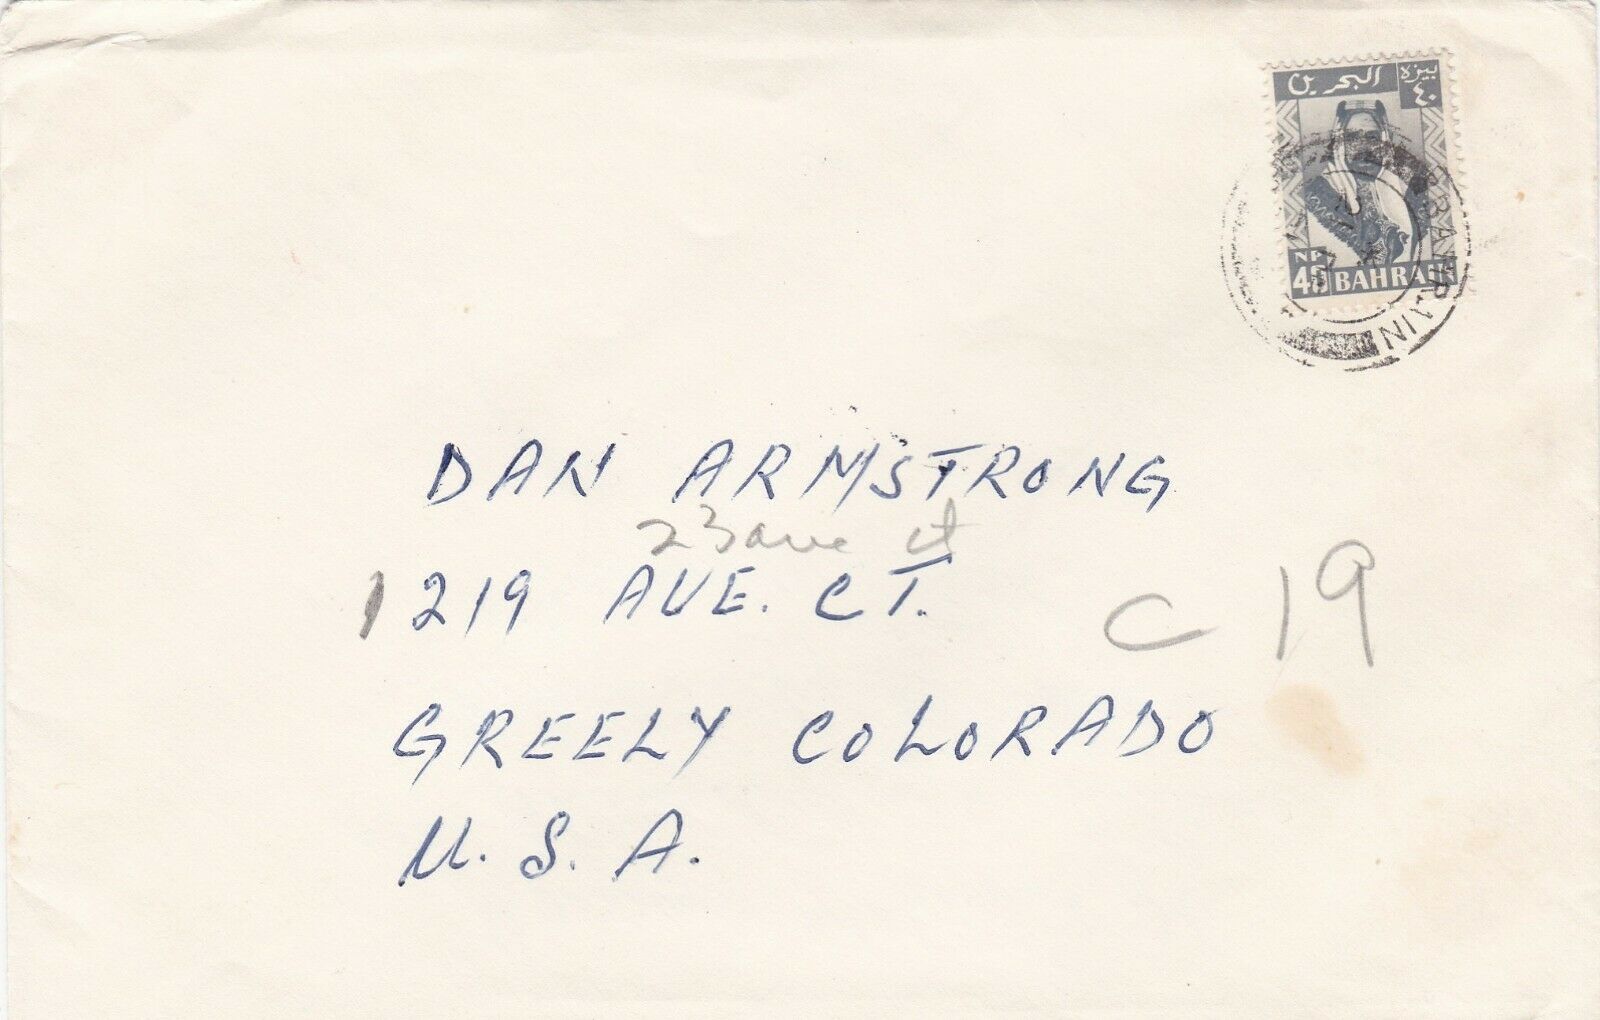 البحرين بيزة
٤٠
NP
40 BAHRAIN
BAHRAIN
DAN ARMSTRONG
23 ave ct
1219 AVE. CT. C 19
GREELY COLORADO
U.S.A.